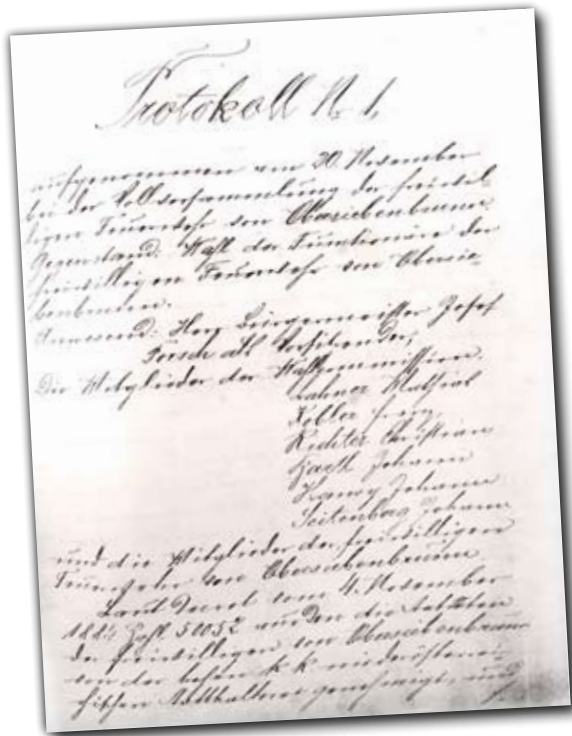 Protokoll N 1.
aufgenommen am 20. November
bei der Vollversammlung der freiwil-
ligen Feuerwehr von Obersiebenbrunn
Gegenstand: Wahl der Functionäre der
freiwilligen Feuerwehr von Obersie-
benbrunn.
Anwesend: Herr Bürgermeister Josef
als Vorsitzender,
Die Mitglieder der Wahlkommission.
Mathias
Kobler Franz,
Richter Christian
Johann
Johann
Johann
und die Mitglieder der freiwilligen
Feuerwehr von Obersiebenbrunn
Laut Decret vom 4. November
Zahl 50052 wurden die Statuten
der freiwilligen von Obersiebenbrunn
von der hohen k. k. niederösterrei-
chischen Statthalterei genehmigt, und